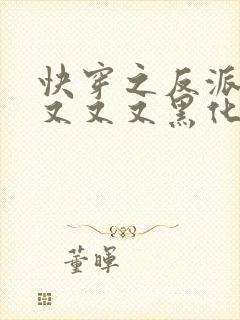 快穿之反派
又又又黑化
董暉